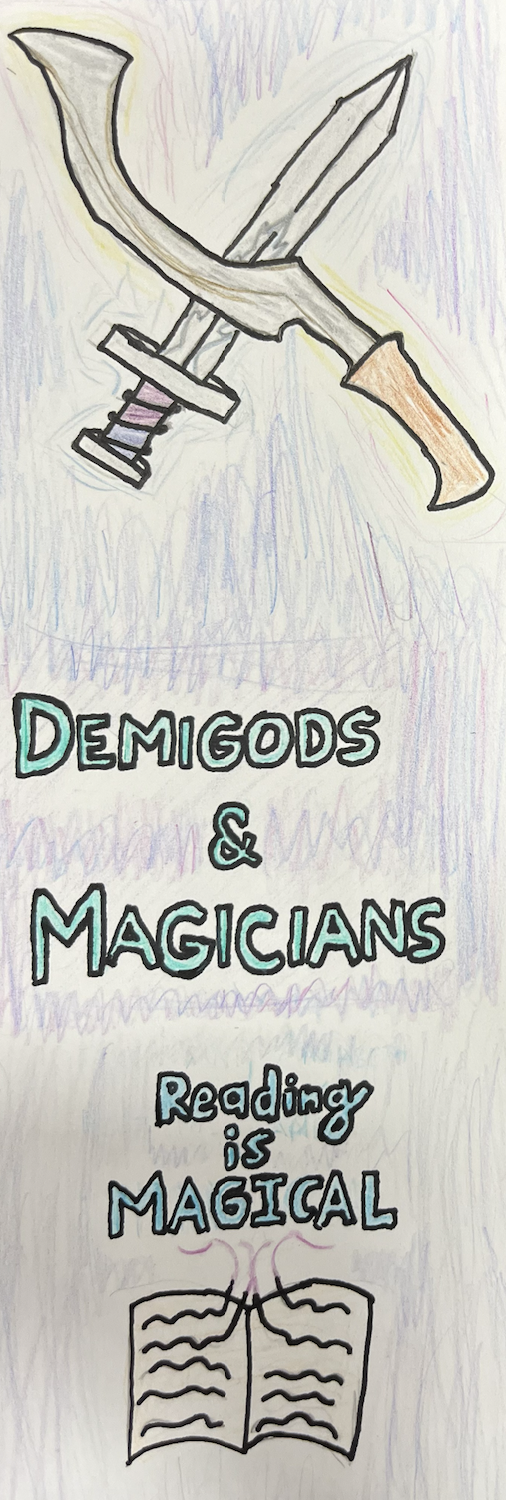 DEMIGODS
&
MAGICIANS
Reading
is
MAGICAL